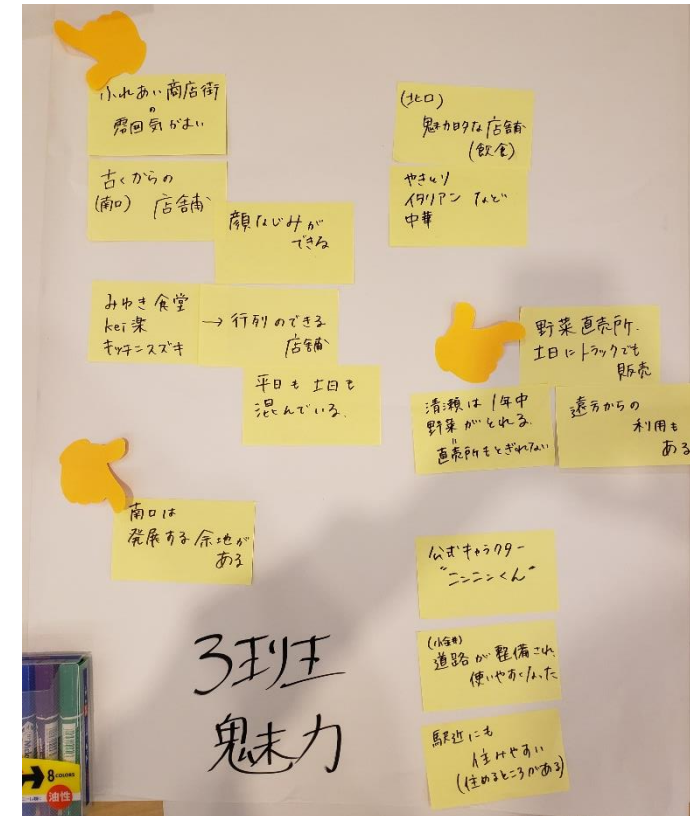 ふれあい商店街
の
雰囲気がよい
古くからの
(南口) 店舗
顔なじみが
できる
みゆき食堂
kei楽
キッチンスズキ
→ 行列のできる
店舗
平日も土日も
混んでいる。
南口は
発展する余地が
ある
(北口)
魅力的な店舗
(飲食)
やきとり
イタリアン など
中華
野菜直売所。
土日にトラックでも
販売
清瀬は1年中
野菜がとれる。
〃
直売所もとぎれない
遠方からの
利用も
ある
公式キャラクター
"ニンニンくん"
(小金井)
道路が整備され、
使いやすくなった
駅近にも
住みやすい
(住めるところがある)
3班
魅力
8 COLORS
油性